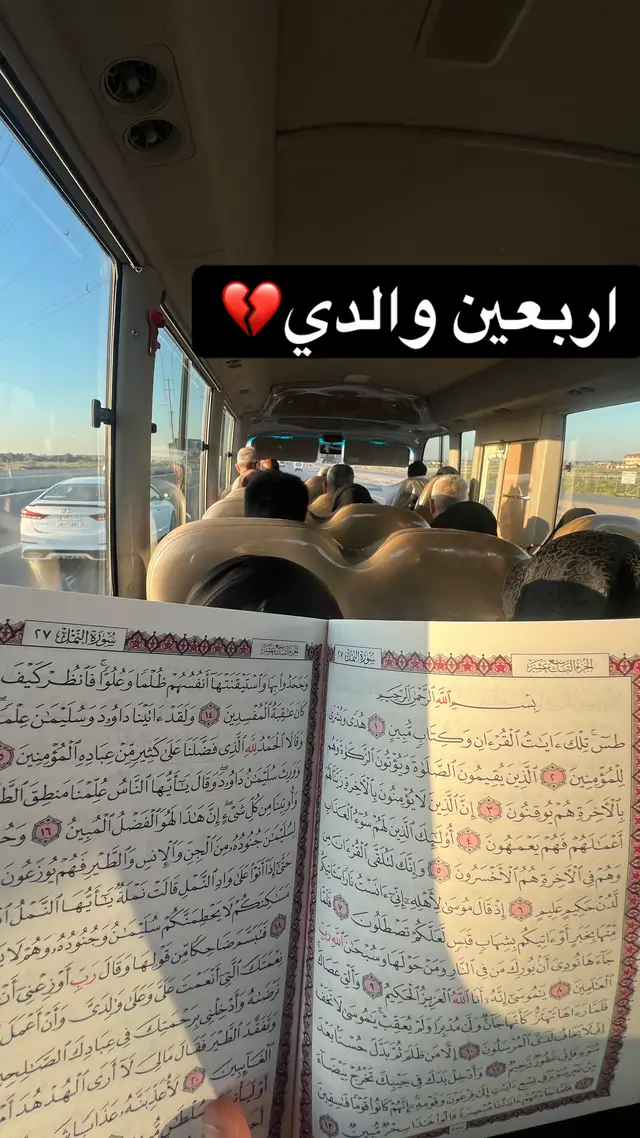 اربعين والدي💔
الجزء التاسع عشر
سورة النمل ٢٧
بِسۡمِ ٱللَّهِ ٱلرَّحۡمَٰنِ ٱلرَّحِيمِ
طسٓۚ تِلۡكَ ءَايَٰتُ ٱلۡقُرۡءَانِ وَكِتَابٖ مُّبِينٍ ١ هُدٗى وَبُشۡرَىٰ
لِلۡمُؤۡمِنِينَ ٢ ٱلَّذِينَ يُقِيمُونَ ٱلصَّلَوٰةَ وَيُؤۡتُونَ ٱلزَّكَوٰةَ وَهُم
بِٱلۡأٓخِرَةِ هُمۡ يُوقِنُونَ ٣ إِنَّ ٱلَّذِينَ لَا يُؤۡمِنُونَ بِٱلۡأٓخِرَةِ زَيَّنَّا لَهُمۡ
أَعۡمَٰلَهُمۡ فَهُمۡ يَعۡمَهُونَ ٤ أُوْلَٰٓئِكَ ٱلَّذِينَ لَهُمۡ سُوٓءُ ٱلۡعَذَابِ
وَهُمۡ فِي ٱلۡأٓخِرَةِ هُمُ ٱلۡأَخۡسَرُونَ ٥ وَإِنَّكَ لَتُلَقَّى ٱلۡقُرۡءَانَ مِن
لَّدُنۡ حَكِيمٍ عَلِيمٍ ٦ إِذۡ قَالَ مُوسَىٰ لِأَهۡلِهِۦٓ إِنِّيٓ ءَانَسۡتُ نَارٗا سَـَٔاتِيكُم
مِّنۡهَا بِخَبَرٍ أَوۡ ءَاتِيكُم بِشِهَابٖ قَبَسٖ لَّعَلَّكُمۡ تَصۡطَلُونَ ٧ فَلَمَّا
جَآءَهَا نُودِيَ أَنۢ بُورِكَ مَن فِي ٱلنَّارِ وَمَنۡ حَوۡلَهَا وَسُبۡحَٰنَ ٱللَّهِ رَبِّ
ٱلۡعَٰلَمِينَ ٨ يَٰمُوسَىٰٓ إِنَّهُۥٓ أَنَا ٱللَّهُ ٱلۡعَزِيزُ ٱلۡحَكِيمُ ٩ وَأَلۡقِ عَصَاكَۚ
فَلَمَّا رَءَاهَا تَهۡتَزُّ كَأَنَّهَا جَآنّٞ وَلَّىٰ مُدۡبِرٗا وَلَمۡ يُعَقِّبۡۚ يَٰمُوسَىٰ لَا تَخَفۡ
إِنِّي لَا يَخَافُ لَدَيَّ ٱلۡمُرۡسَلُونَ ١٠ إِلَّا مَن ظَلَمَ ثُمَّ بَدَّلَ حُسۡنَۢا بَعۡدَ
سُوٓءٖ فَإِنِّي غَفُورٞ رَّحِيمٞ ١١ وَأَدۡخِلۡ يَدَكَ فِي جَيۡبِكَ تَخۡرُجۡ بَيۡضَآءَ
مِنۡ غَيۡرِ سُوٓءٖۖ فِي تِسۡعِ ءَايَٰتٍ إِلَىٰ فِرۡعَوۡنَ وَقَوۡمِهِۦٓۚ إِنَّهُمۡ كَانُواْ قَوۡمٗا فَٰسِقِينَ
١٢ فَلَمَّا جَآءَتۡهُمۡ ءَايَٰتُنَا مُبۡصِرَةٗ قَالُواْ هَٰذَا سِحۡرٞ مُّبِينٞ ١٣
الجزء التاسع عشر
سورة النمل ٢٧
وَجَحَدُواْ بِهَا وَٱسۡتَيۡقَنَتۡهَآ أَنفُسُهُمۡ ظُلۡمٗا وَعُلُوّٗاۚ فَٱنظُرۡ كَيۡفَ
كَانَ عَٰقِبَةُ ٱلۡمُفۡسِدِينَ ١٤ وَلَقَدۡ ءَاتَيۡنَا دَاوُۥدَ وَسُلَيۡمَٰنَ عِلۡمٗاۖ
وَقَالَا ٱلۡحَمۡدُ لِلَّهِ ٱلَّذِي فَضَّلَنَا عَلَىٰ كَثِيرٖ مِّنۡ عِبَادِهِ ٱلۡمُؤۡمِنِينَ
وَوَرِثَ سُلَيۡمَٰنُ دَاوُۥدَۖ وَقَالَ يَٰٓأَيُّهَا ٱلنَّاسُ عُلِّمۡنَا مَنطِقَ
وَأُوتِينَا مِن كُلِّ شَيۡءٍۖ إِنَّ هَٰذَا لَهُوَ ٱلۡفَضۡلُ ٱلۡمُبِينُ ١٦
لِسُلَيۡمَٰنَ جُنُودُهُۥ مِنَ ٱلۡجِنِّ وَٱلۡإِنسِ وَٱلطَّيۡرِ فَهُمۡ يُوزَعُونَ
حَتَّىٰٓ إِذَآ أَتَوۡاْ عَلَىٰ وَادِ ٱلنَّمۡلِ قَالَتۡ نَمۡلَةٞ يَٰٓأَيُّهَا ٱلنَّمۡلُ
مَسَٰكِنَكُمۡ لَا يَحۡطِمَنَّكُمۡ سُلَيۡمَٰنُ وَجُنُودُهُۥ وَهُمۡ لَا
١٨ فَتَبَسَّمَ ضَاحِكٗا مِّن قَوۡلِهَا وَقَالَ رَبِّ أَوۡزِعۡنِيٓ أَنۡ
نِعۡمَتَكَ ٱلَّتِيٓ أَنۡعَمۡتَ عَلَيَّ وَعَلَىٰ وَٰلِدَيَّ وَأَنۡ أَعۡمَلَ
تَرۡضَىٰهُ وَأَدۡخِلۡنِي بِرَحۡمَتِكَ فِي عِبَادِكَ ٱلصَّٰلِحِينَ
وَتَفَقَّدَ ٱلطَّيۡرَ فَقَالَ مَالِيَ لَآ أَرَى ٱلۡهُدۡهُدَ أَمۡ
ٱلۡغَآئِبِينَ ٢٠ لَأُعَذِّبَنَّهُۥ عَذَابٗا